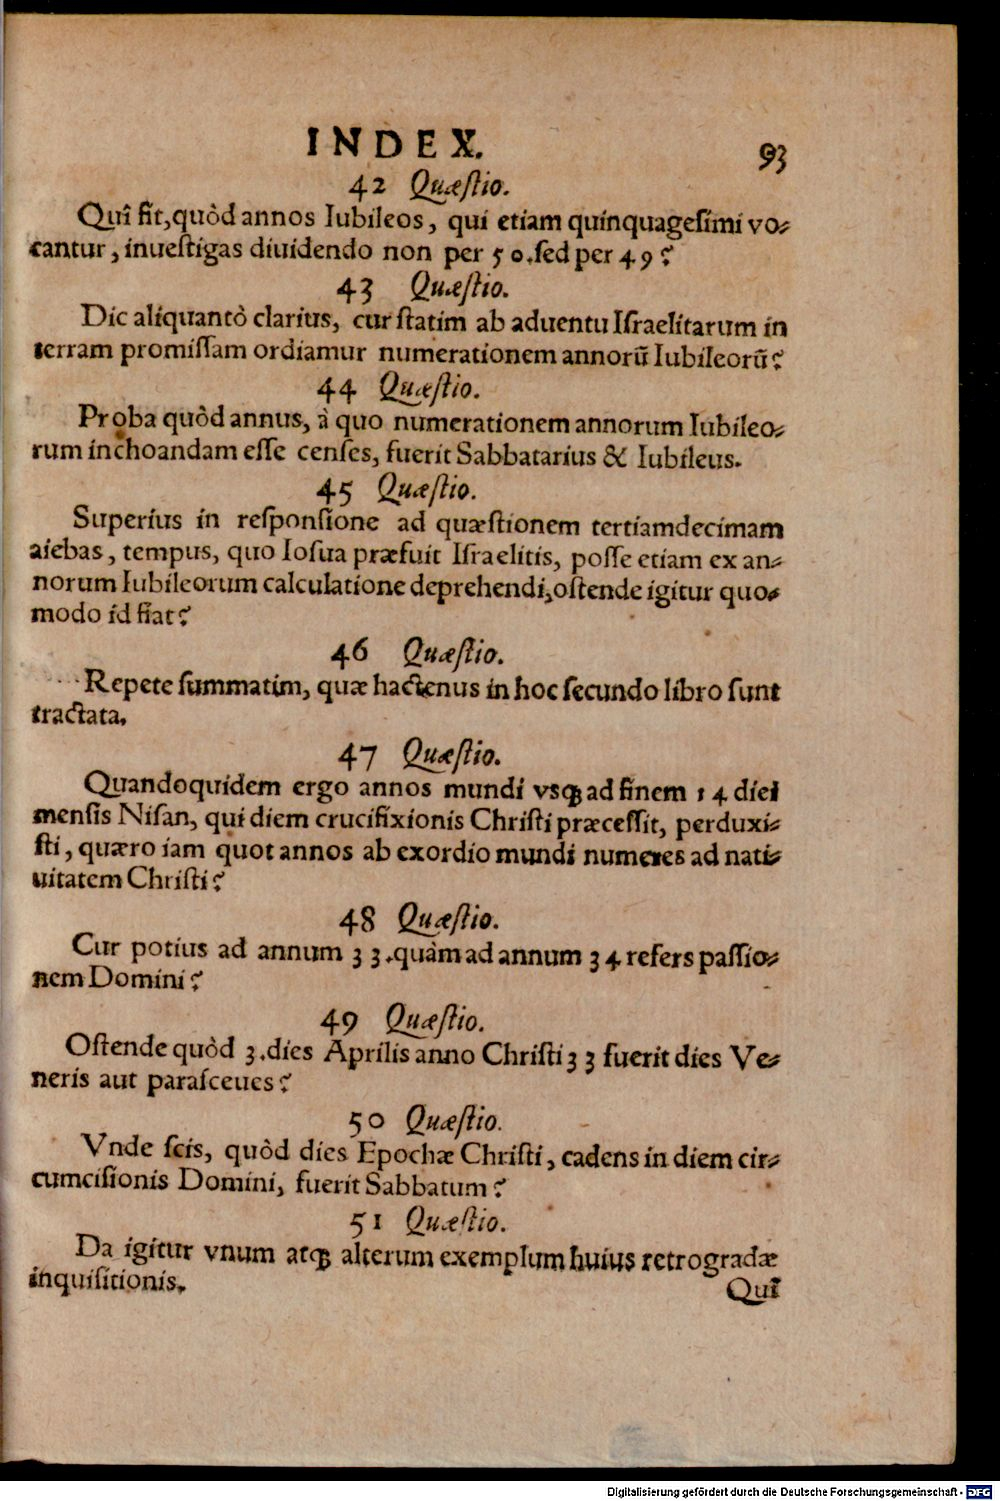 INDEX.
93
42 Quæſtio.
Quî fit, quòd annos Iubileos, qui etiam quinquageſimi vo-
cantur, inueſtigas diuidendo non per 50. ſed per 49?
43 Quæſtio.
Dic aliquantò clarius, cur ſtatim ab aduentu Iſraelitarum in
terram promiſſam ordiamur numerationem annorū Iubileorū?
44 Quæſtio.
Proba quòd annus, à quo numerationem annorum Iubileo-
rum inchoandam eſſe cenſes, fuerit Sabbatarius & Iubileus.
45 Quæſtio.
Superius in reſponſione ad quæſtionem tertiamdecimam
aiebas, tempus, quo Ioſua præfuit Iſraelitis, poſſe etiam ex an-
norum Iubileorum calculatione deprehendi, oſtende igitur quo-
modo id fiat?
46 Quæſtio.
Repete ſummatim, quæ hactenus in hoc ſecundo libro ſunt
tractata.
47 Quæſtio.
Quandoquidem ergo annos mundi vsq́; ad finem 14 diei
menſis Niſan, qui diem crucifixionis Chriſti præceſſit, perduxi-
ſti, quæro iam quot annos ab exordio mundi numeres ad nati-
uitatem Chriſti?
48 Quæſtio.
Cur potius ad annum 33. quàm ad annum 34 refers paſſio-
nem Domini?
49 Quæſtio.
Oſtende quòd 3. dies Aprilis anno Chriſti 33 fuerit dies Ve-
neris aut paraſceues?
50 Quæſtio.
Vnde ſcis, quòd dies Epochæ Chriſti, cadens in diem cir-
cumciſionis Domini, fuerit Sabbatum?
51 Quæſtio.
Da igitur vnum atq́; alterum exemplum huius retrogradæ
inquiſitionis.
Quî
Digitalisierung gefördert durch die Deutsche Forschungsgemeinschaft - DFG